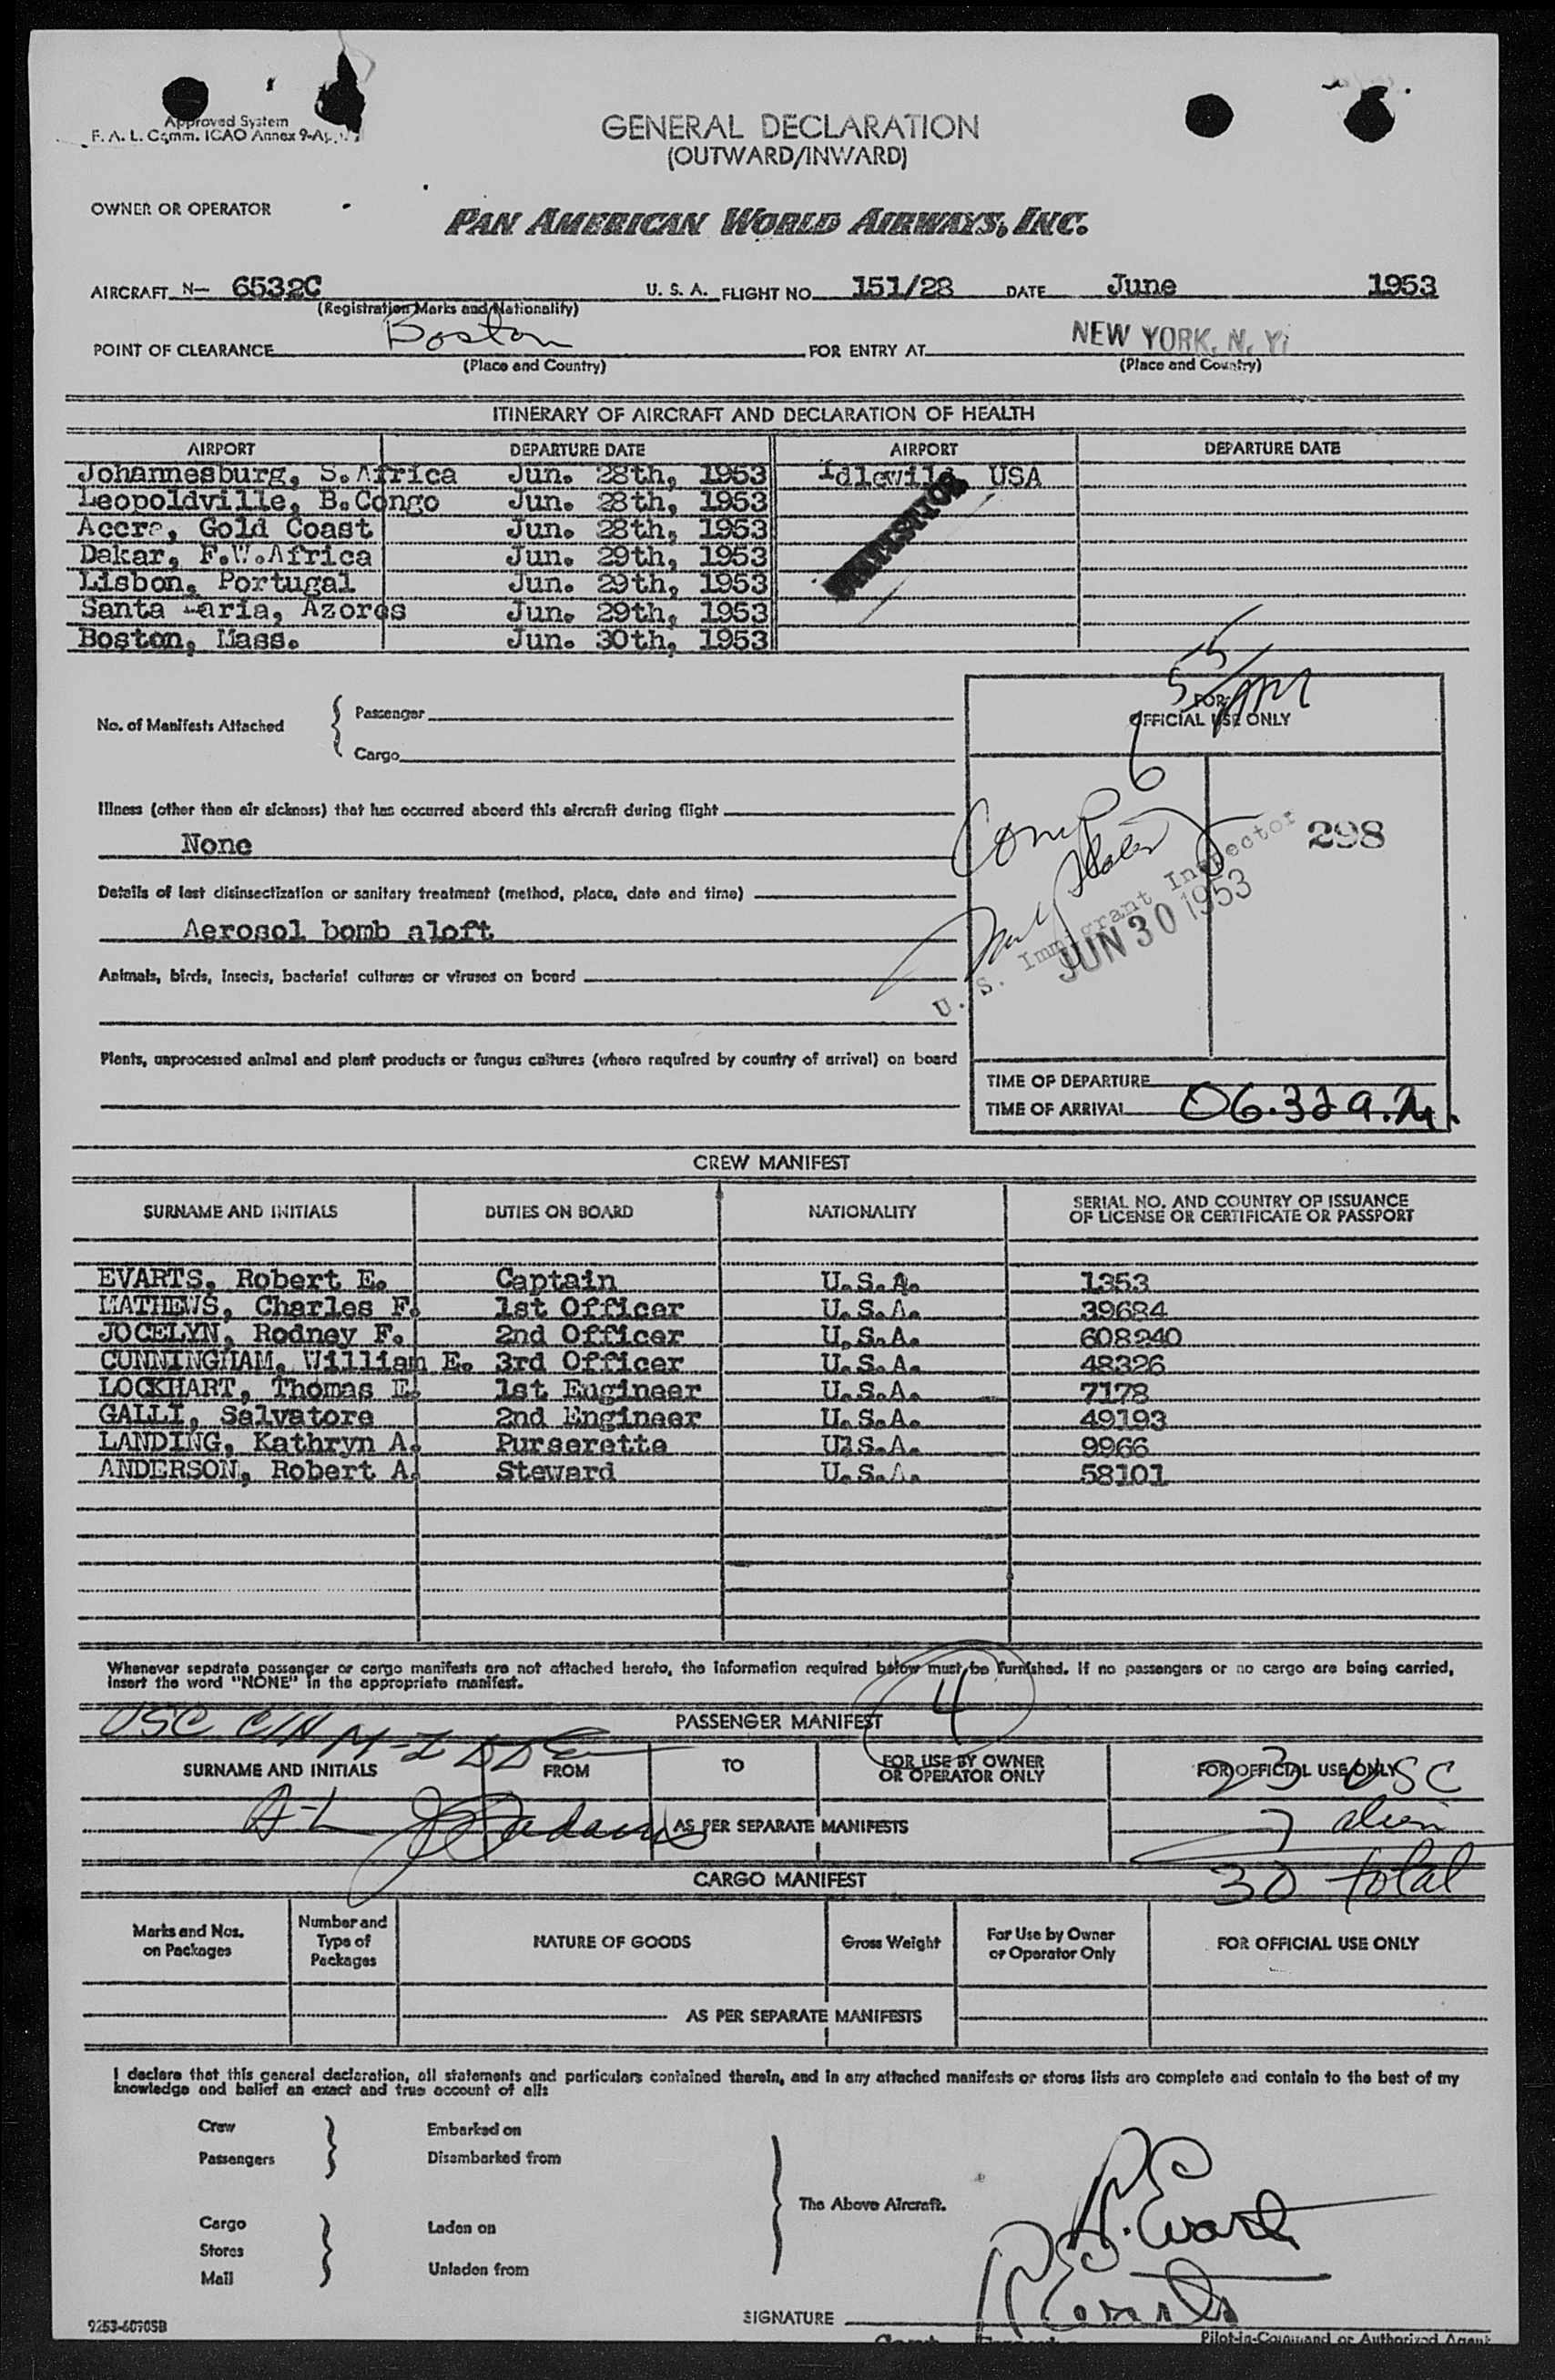 Approved System
F. A. L. Comm. ICAO Annex 9-Ap
GENERAL DECLARATION
(OUTWARD/INWARD)
OWNER OR OPERATOR
PAN AMERICAN WORLD AIRWAYS, INC.
AIRCRAFT N- 6532C U. S. A. FLIGHT NO. 151/28 DATE June 1953
(Registration Marks and Nationality)
POINT OF CLEARANCE Boston FOR ENTRY AT NEW YORK, N. Y.
(Place and Country) (Place and Country)
ITINERARY OF AIRCRAFT AND DECLARATION OF HEALTH
AIRPORT DEPARTURE DATE AIRPORT DEPARTURE DATE
Johannesburg, S.Africa Jun. 28th, 1953 Idlewild USA
Leopoldville, B.Congo Jun. 28th, 1953
Accra, Gold Coast Jun. 28th, 1953
Dakar, F.W.Africa Jun. 29th, 1953
Lisbon, Portugal Jun. 29th, 1953
Santa Maria, Azores Jun. 29th, 1953
Boston, Mass. Jun. 30th, 1953
No. of Manifests Attached
Passenger
Cargo
FOR
OFFICIAL USE ONLY
Illness (other than air sickness) that has occurred aboard this aircraft during flight
None
298
Details of last disinsectization or sanitary treatment (method, place, date and time)
Aerosol bomb aloft
U. S. Immigrant Inspector
JUN 30 1953
Animals, birds, insects, bacterial cultures or viruses on board
Plants, unprocessed animal and plant products or fungus cultures (where required by country of arrival) on board
TIME OF DEPARTURE
TIME OF ARRIVAL 06.32 a.m.
CREW MANIFEST
SURNAME AND INITIALS DUTIES ON BOARD NATIONALITY SERIAL NO. AND COUNTRY OF ISSUANCE
OF LICENSE OR CERTIFICATE OR PASSPORT
EVARTS, Robert E. Captain U.S.A. 1353
MATHEWS, Charles F. 1st Officer U.S.A. 39684
JOCELYN, Rodney F. 2nd Officer U.S.A. 608240
CUNNINGHAM, William E. 3rd Officer U.S.A. 48326
LOCKHART, Thomas E. 1st Engineer U.S.A. 7178
GALLI, Salvatore 2nd Engineer U.S.A. 49193
LANDING, Kathryn A. Purserette U.S.A. 9966
ANDERSON, Robert A. Steward U.S.A. 58101
Whenever separate passenger or cargo manifests are not attached hereto, the information required below must be furnished. If no passengers or no cargo are being carried,
insert the word "NONE" in the appropriate manifest.
4
USC PASSENGER MANIFEST
SURNAME AND INITIALS FROM TO FOR USE BY OWNER
OR OPERATOR ONLY FOR OFFICIAL USE ONLY
23 USC
A-L AS PER SEPARATE MANIFESTS 7 alien
CARGO MANIFEST 30 total
Marks and Nos.
on Packages
Number and
Type of
Packages
NATURE OF GOODS Gross Weight
For Use by Owner
or Operator Only
FOR OFFICIAL USE ONLY
AS PER SEPARATE MANIFESTS
I declare that this general declaration, all statements and particulars contained therein, and in any attached manifests or stores lists are complete and contain to the best of my
knowledge and belief an exact and true account of all:
Crew Embarked on
Passengers Disembarked from
The Above Aircraft.
Cargo Laden on
Stores
Mail Unladen from
R. Evarts
R E Evarts
SIGNATURE
9253-60705B
Pilot-in-Command or Authorized Agent